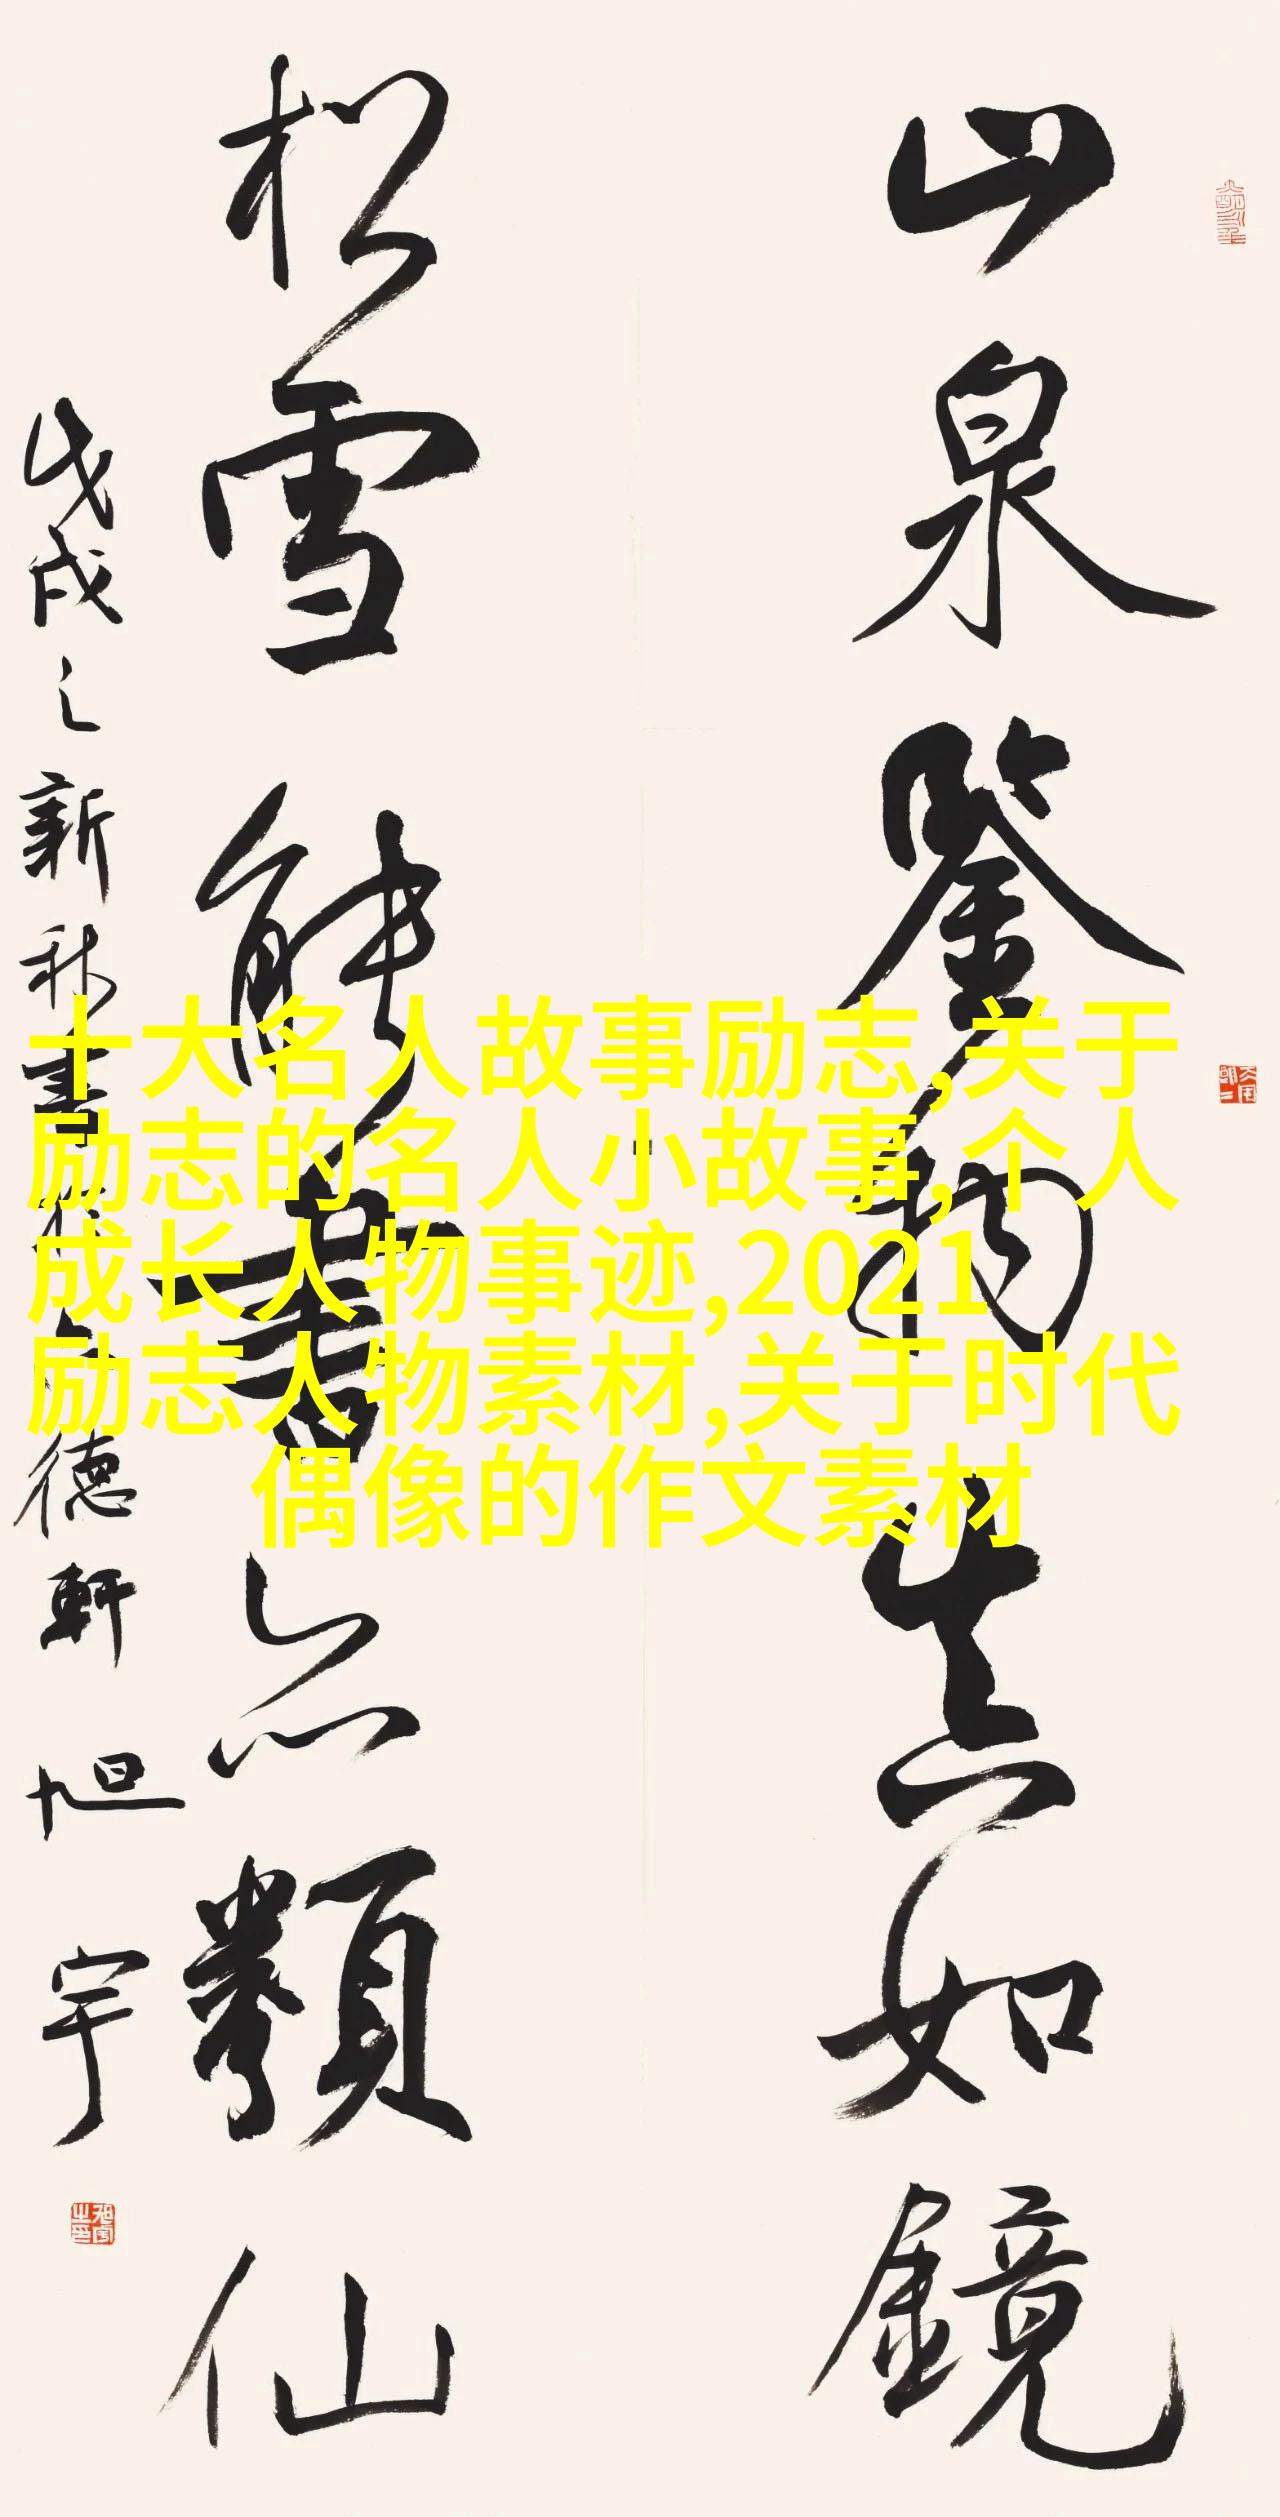 山泉鑒物真如鏡
松雪能書亦類仙
戊戌之新秋書於德軒 旭宇
十大名人故事励志,关于
励志的名人小故事,个人
成长人物事迹,2021
励志人物素材,关于时代
偶像的作文素材